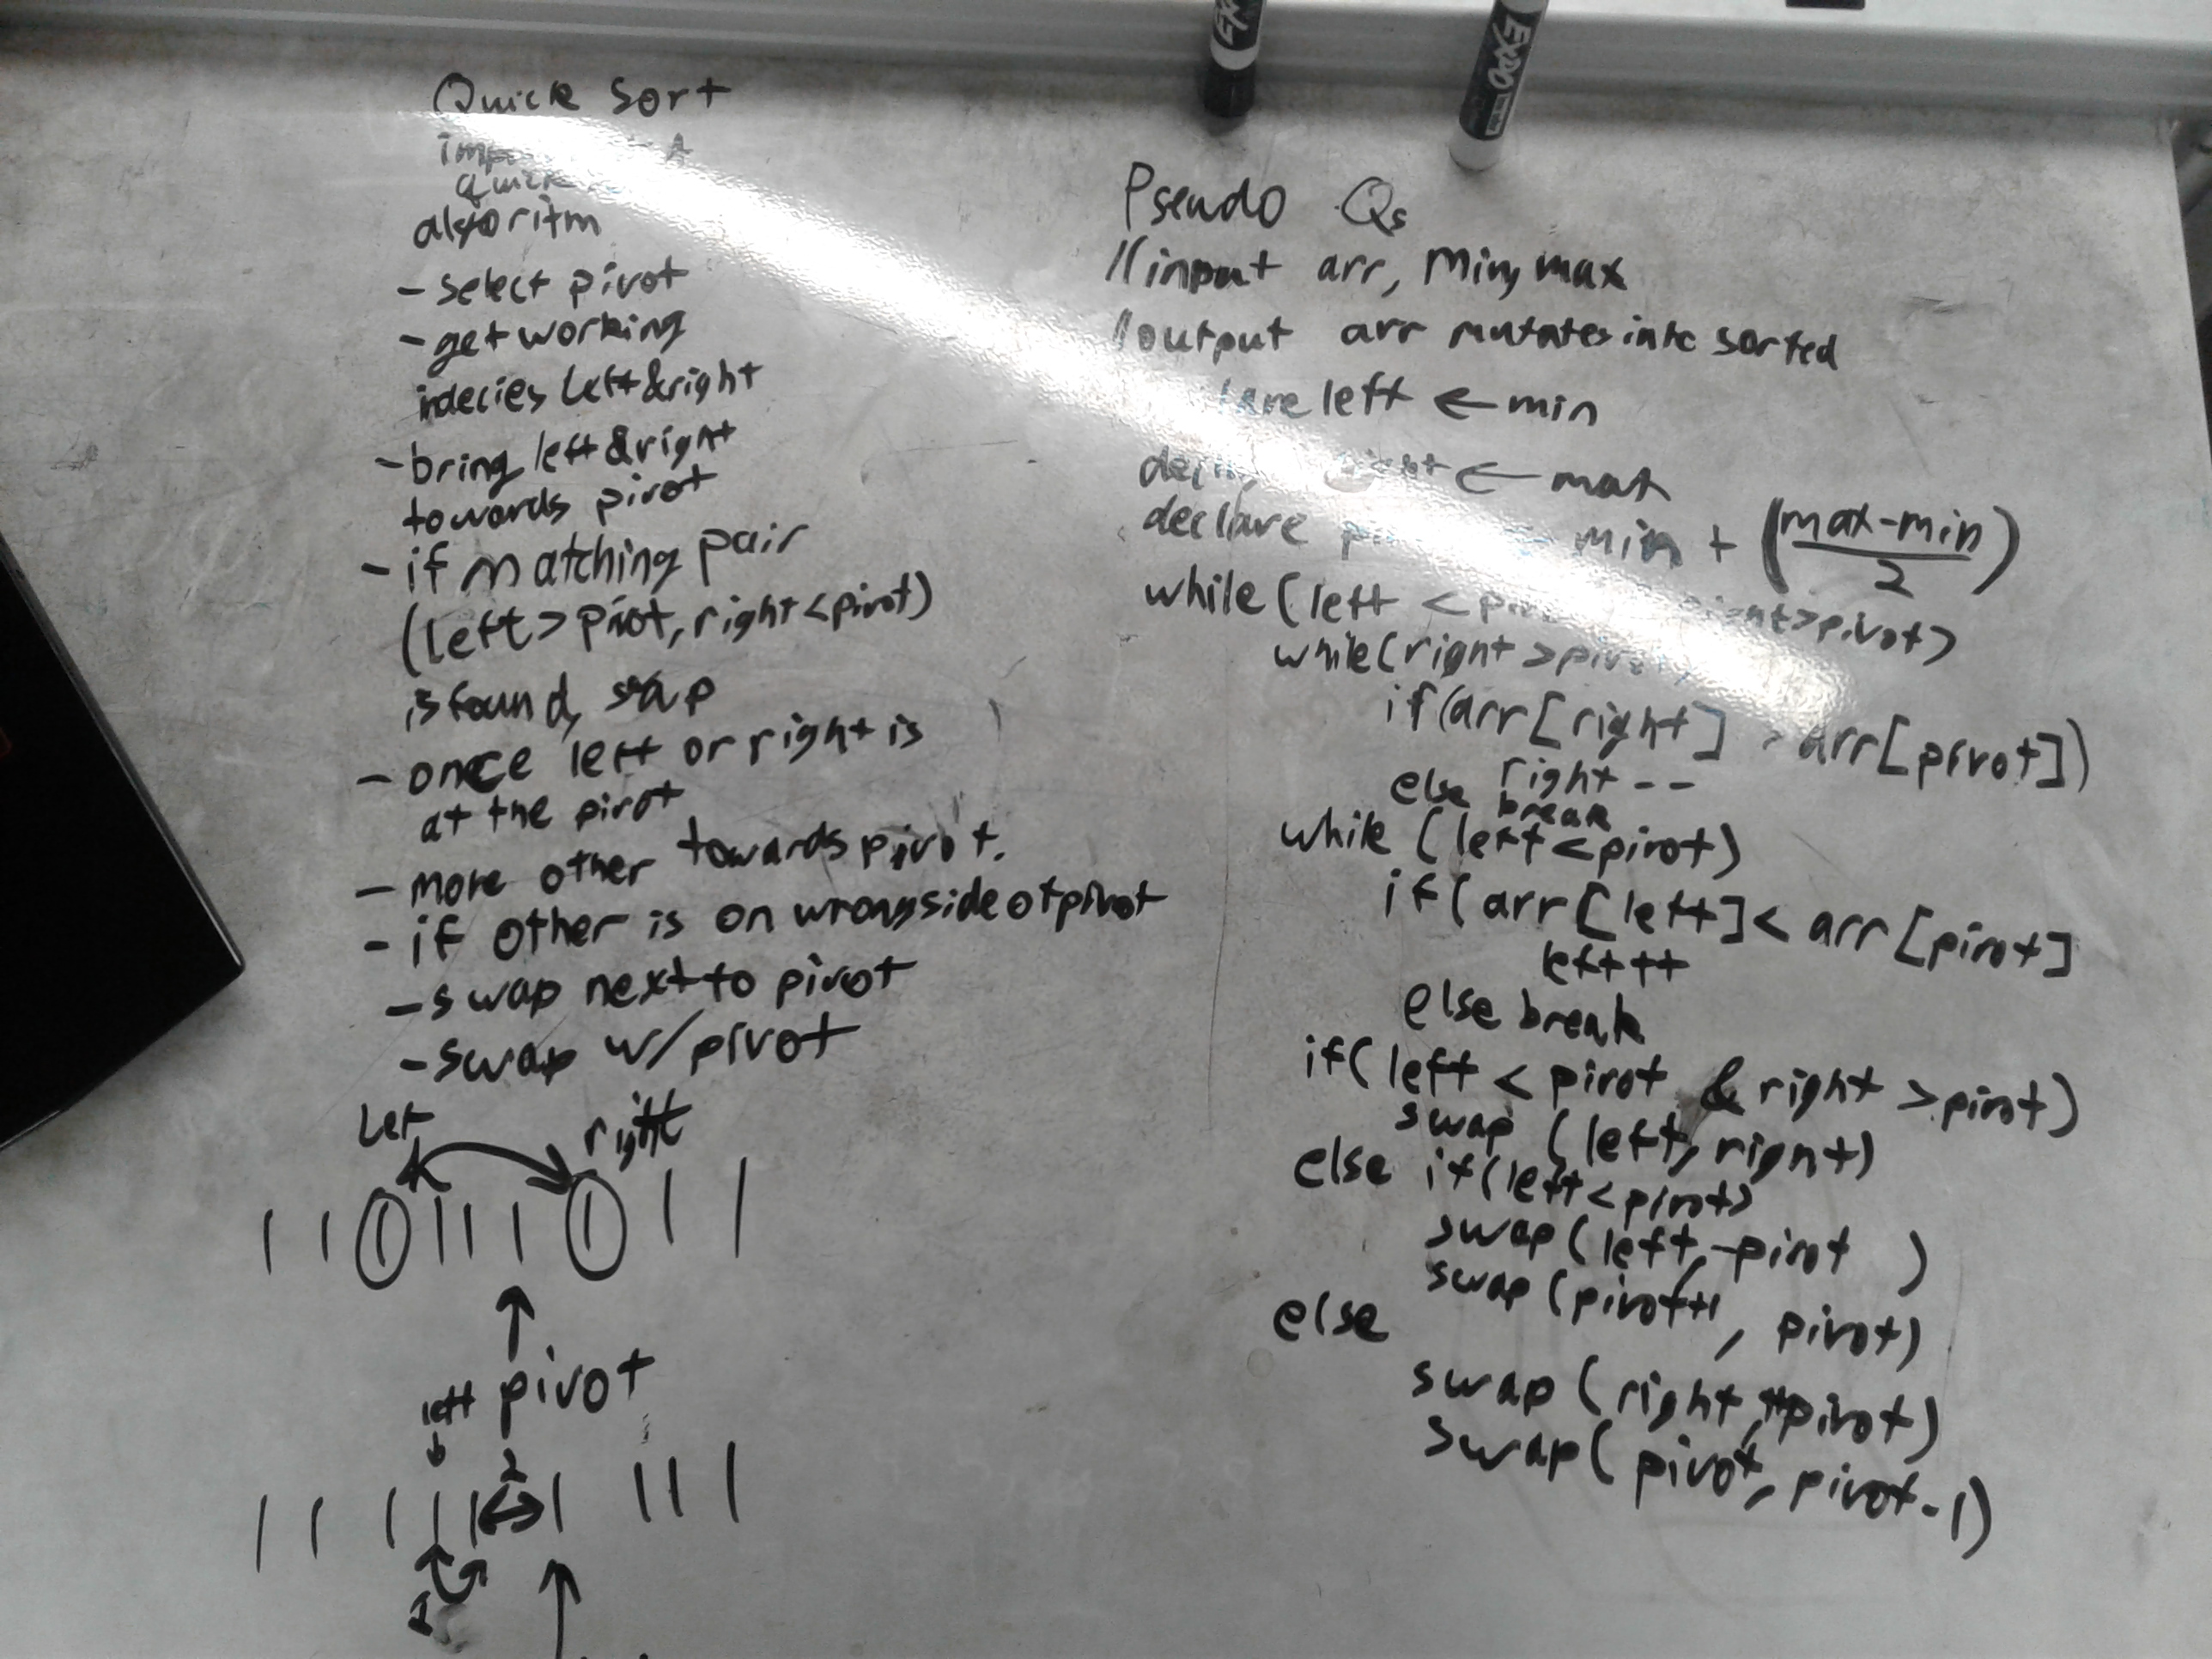 EXPO
Quick Sort
Quick
algoritm
- select pivot
- get working
indecies left & right
- bring left & right
towards pivot
- if matching pair
(left > pivot, right < pivot)
is found, swap
- once left or right is
at the pivot
- move other towards pivot.
- if other is on wrong side of pivot
- swap next to pivot
- swap w/ pivot
Left
right
pivot
left
2
1
Pseudo Qs
// input arr, min, max
// output arr mutates into sorted
left ← min
right ← max
declare min + (max-min / 2)
while (left < right > pivot)
while (right > pivot)
if (arr[right] > arr[pivot])
right --
else break
while (left < pivot)
if (arr[left] < arr[pivot]
left ++
else break
if (left < pivot & right > pivot)
swap (left, right)
else if (left < pivot)
swap (left, -pivot )
swap (pivot+1, pivot)
else
swap (right, ++pivot)
swap (pivot, pivot-1)